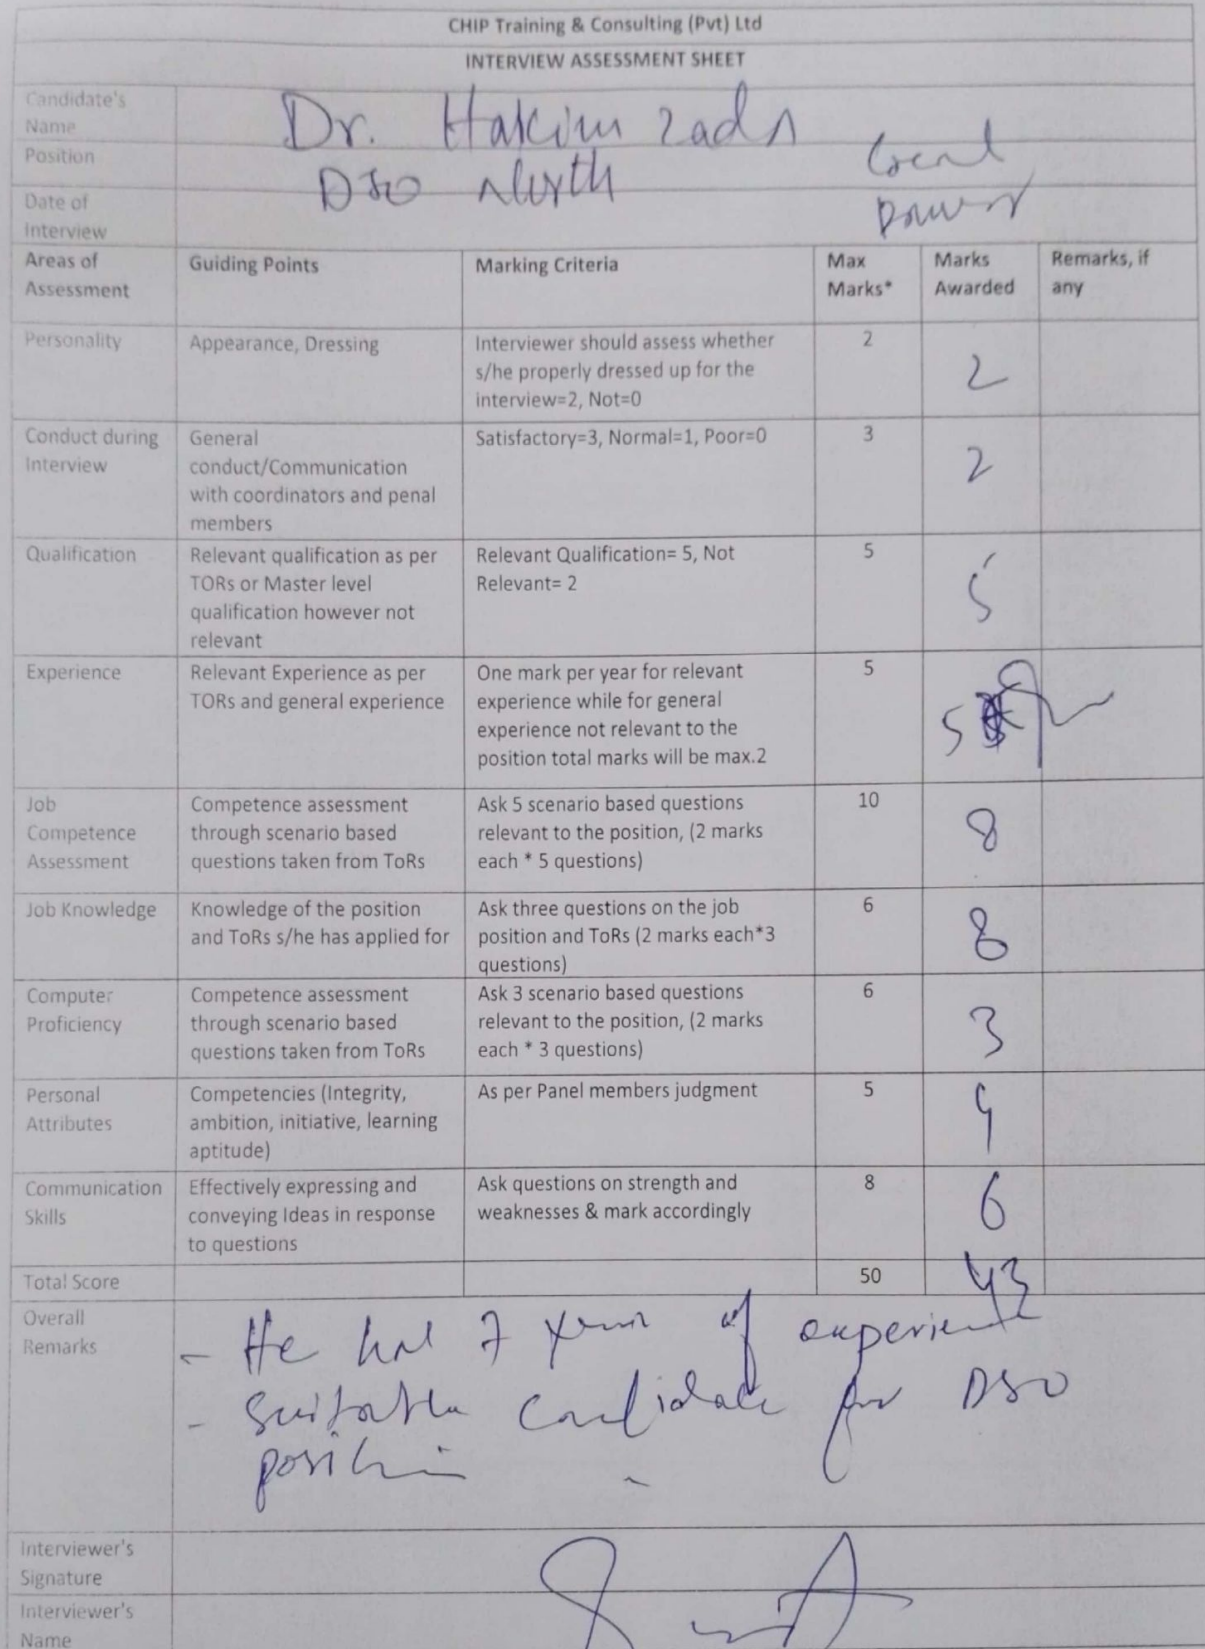 CHIP Training & Consulting (Pvt) Ltd
INTERVIEW ASSESSMENT SHEET
Candidate's
Name
Dr. Hakim zada
Position
DSO North
Local
Date of
Interview
Areas of
Assessment
Guiding Points
Marking Criteria
Max
Marks*
Marks
Awarded
Remarks, if
any
Personality
Appearance, Dressing
Interviewer should assess whether
s/he properly dressed up for the
interview=2, Not=0
2
2
Conduct during
Interview
General
conduct/Communication
with coordinators and penal
members
Satisfactory=3, Normal=1, Poor=0
3
2
Qualification
Relevant qualification as per
TORs or Master level
qualification however not
relevant
Relevant Qualification= 5, Not
Relevant= 2
5
5
Experience
Relevant Experience as per
TORs and general experience
One mark per year for relevant
experience while for general
experience not relevant to the
position total marks will be max.2
5
5
Job
Competence
Assessment
Competence assessment
through scenario based
questions taken from ToRs
Ask 5 scenario based questions
relevant to the position, (2 marks
each * 5 questions)
10
8
Job Knowledge
Knowledge of the position
and ToRs s/he has applied for
Ask three questions on the job
position and ToRs (2 marks each*3
questions)
6
8
Computer
Proficiency
Competence assessment
through scenario based
questions taken from ToRs
Ask 3 scenario based questions
relevant to the position, (2 marks
each * 3 questions)
6
3
Personal
Attributes
Competencies (Integrity,
ambition, initiative, learning
aptitude)
As per Panel members judgment
5
4
Communication
Skills
Effectively expressing and
conveying Ideas in response
to questions
Ask questions on strength and
weaknesses & mark accordingly
8
6
Total Score
50
43
Overall
Remarks
- He has 7 years of experience
- Suitable candidate for DSO
position
Interviewer's
Signature
Interviewer's
Name